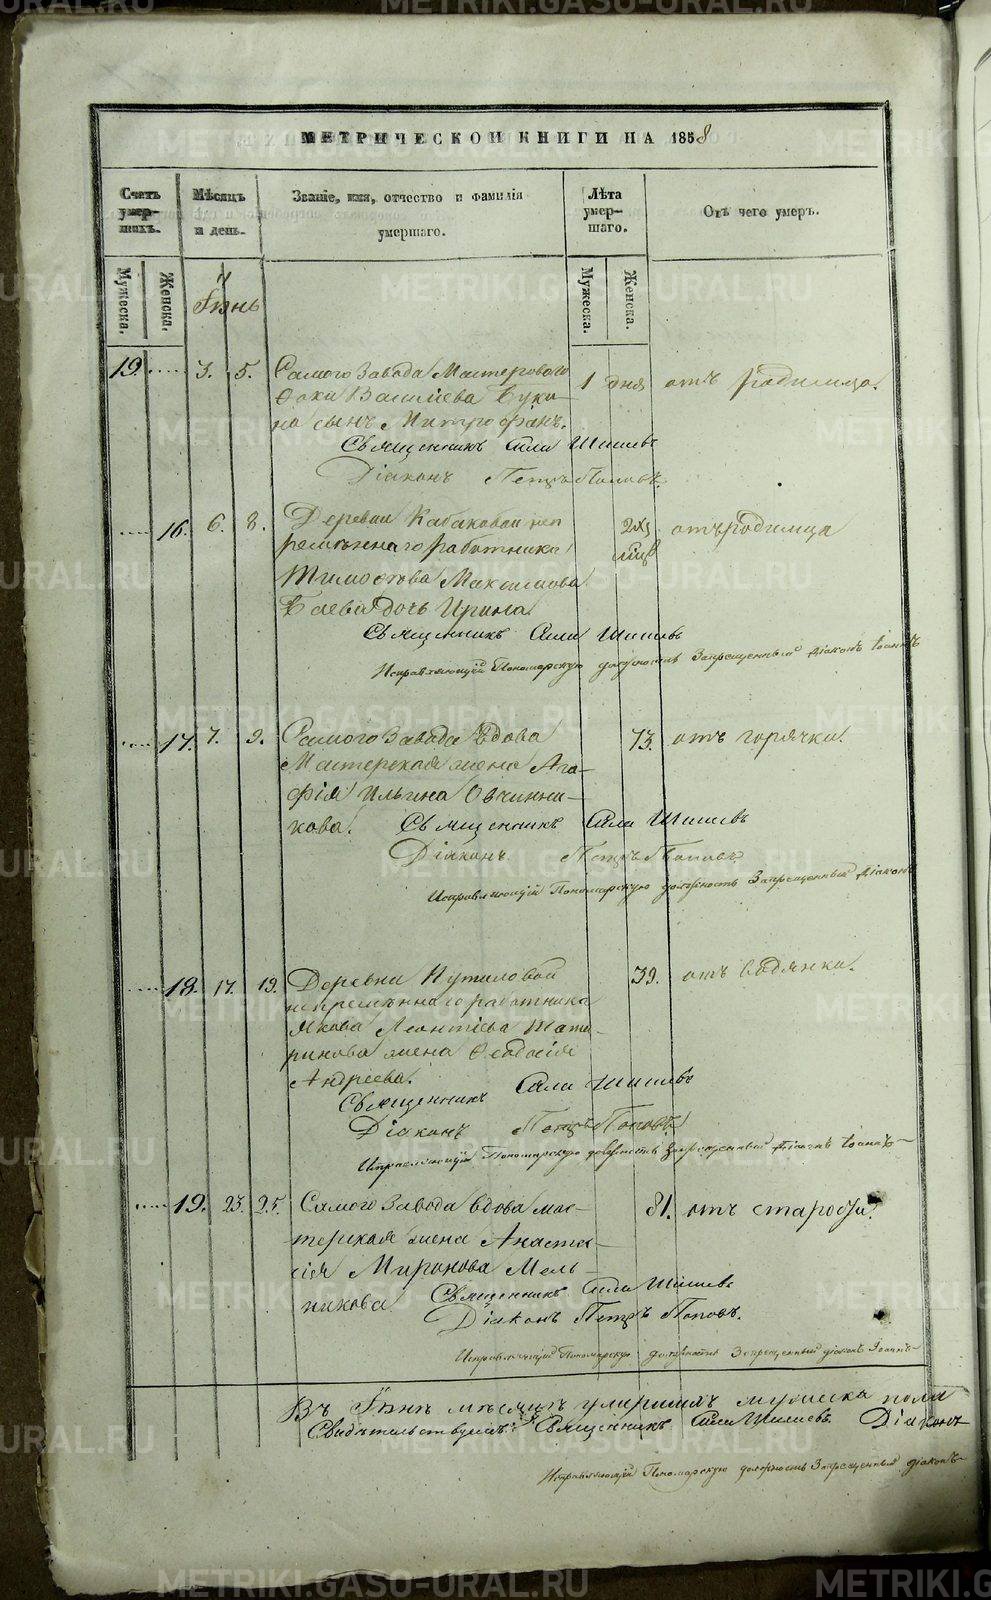 МЕТРИЧЕСКОЙ КНИГИ НА 1858
Счетъ умер-шихъ.
Мѣсяцъ и день.
Званіе, имя, отчество и фамилія умершаго.
Лѣта умер-шаго.
Отъ чего умеръ.
Мужеска. Женска.
Мужеска. Женска.
Іюнь
19. 3. 5. Самого Завода Мастероваго 1 дня отъ родимца.
Фоки Василіева
на сынъ Митрофанъ.
Священникъ Сила Шишевъ
Діаконъ Петръ Поповъ.
16. 6. 8. Деревни Кабаковой неп 2хъ отъ родимца
ремѣннаго работника мѣс
Тимофѣева Максимова
дочь Ирина
Священникъ Сила Шишевъ
Исправляющій Пономарскую должность Запрещенный діаконъ Іоаннъ
17. 7. 9. Самого Завода Вдова 73. отъ горячки.
Мастерская жена Ага-
фія Ильина Овчинни-
кова. Священникъ Сила Шишевъ
Діаконъ Петръ Поповъ.
Исправляющій Пономарскую должность Запрещенный діаконъ
18. 17. 19. Деревни Путиловой 39. отъ водянки.
непремѣннаго работника
Якова Леонтіева
ринова жена Феодосія
Андреева.
Священникъ Сила Шишевъ
Діаконъ Петръ Поповъ.
Исправляющій Пономарскую должность Запрещенный діаконъ Іоаннъ
19. 23. 25. Самого Завода вдова мас- 81. отъ старости.
терская жена Анаста-
сія Миронова Мель-
никова Священникъ Сила Шишевъ
Діаконъ Петръ Поповъ.
Исправляющій Пономарскую должность Запрещенный діаконъ Іоаннъ
Въ Іюнѣ мѣсяцѣ умершихъ мужеска пола
Свидѣтельствуемъ: Священникъ Сила Шишевъ Діаконъ
Исправляющій Пономарскую должность Запрещенный діаконъ
METRIKI.GASO-URAL.RU